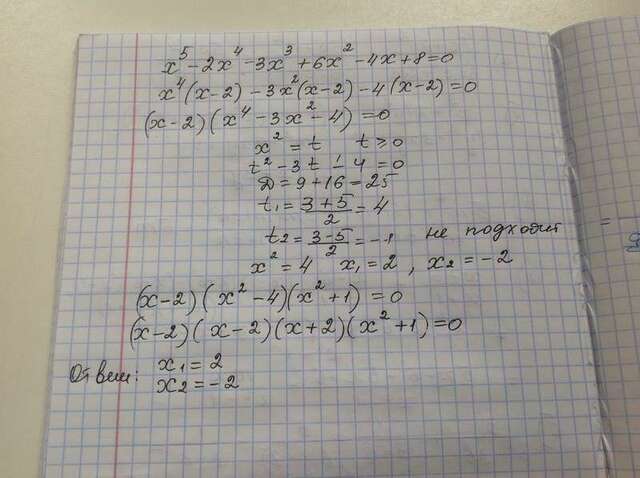 x⁵ - 2x⁴ - 3x³ + 6x² - 4x + 8 = 0
x⁴(x-2) - 3x²(x-2) - 4(x-2) = 0
(x-2)(x⁴ - 3x² - 4) = 0
x² = t t ≥ 0
t² - 3t - 4 = 0
D = 9 + 16 = 25
t₁ = (3+5)/2 = 4
t₂ = (3-5)/2 = -1 не подходит
x² = 4 x₁ = 2, x₂ = -2
(x-2)(x² - 4)(x² + 1) = 0
(x-2)(x-2)(x+2)(x² + 1) = 0
Ответ: x₁ = 2
x₂ = -2
=